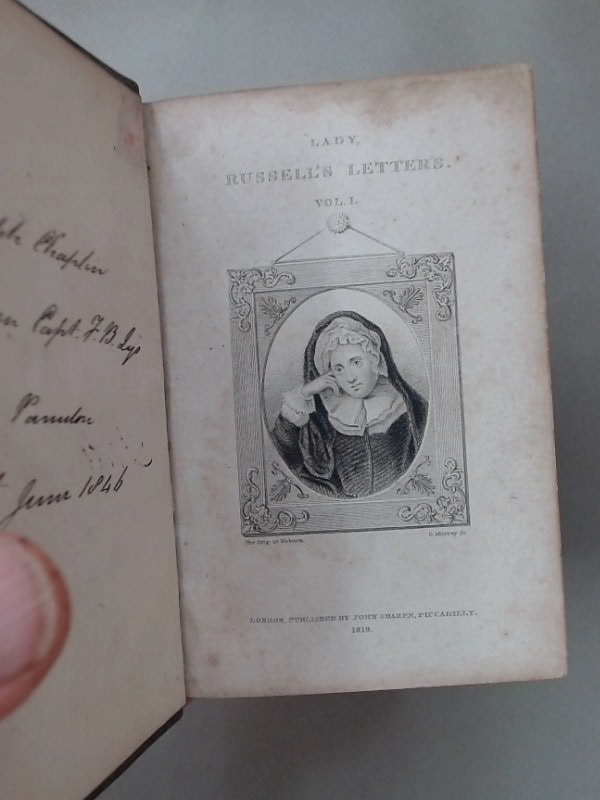 Chaplin
Capt. F. B.
June 1846
LADY,
RUSSELL'S LETTERS.
VOL. I.
The Orig. at Woburn.
G. Murray Sc.
LONDON, PUBLISHED BY JOHN SHARPE, PICCADILLY,
1819.